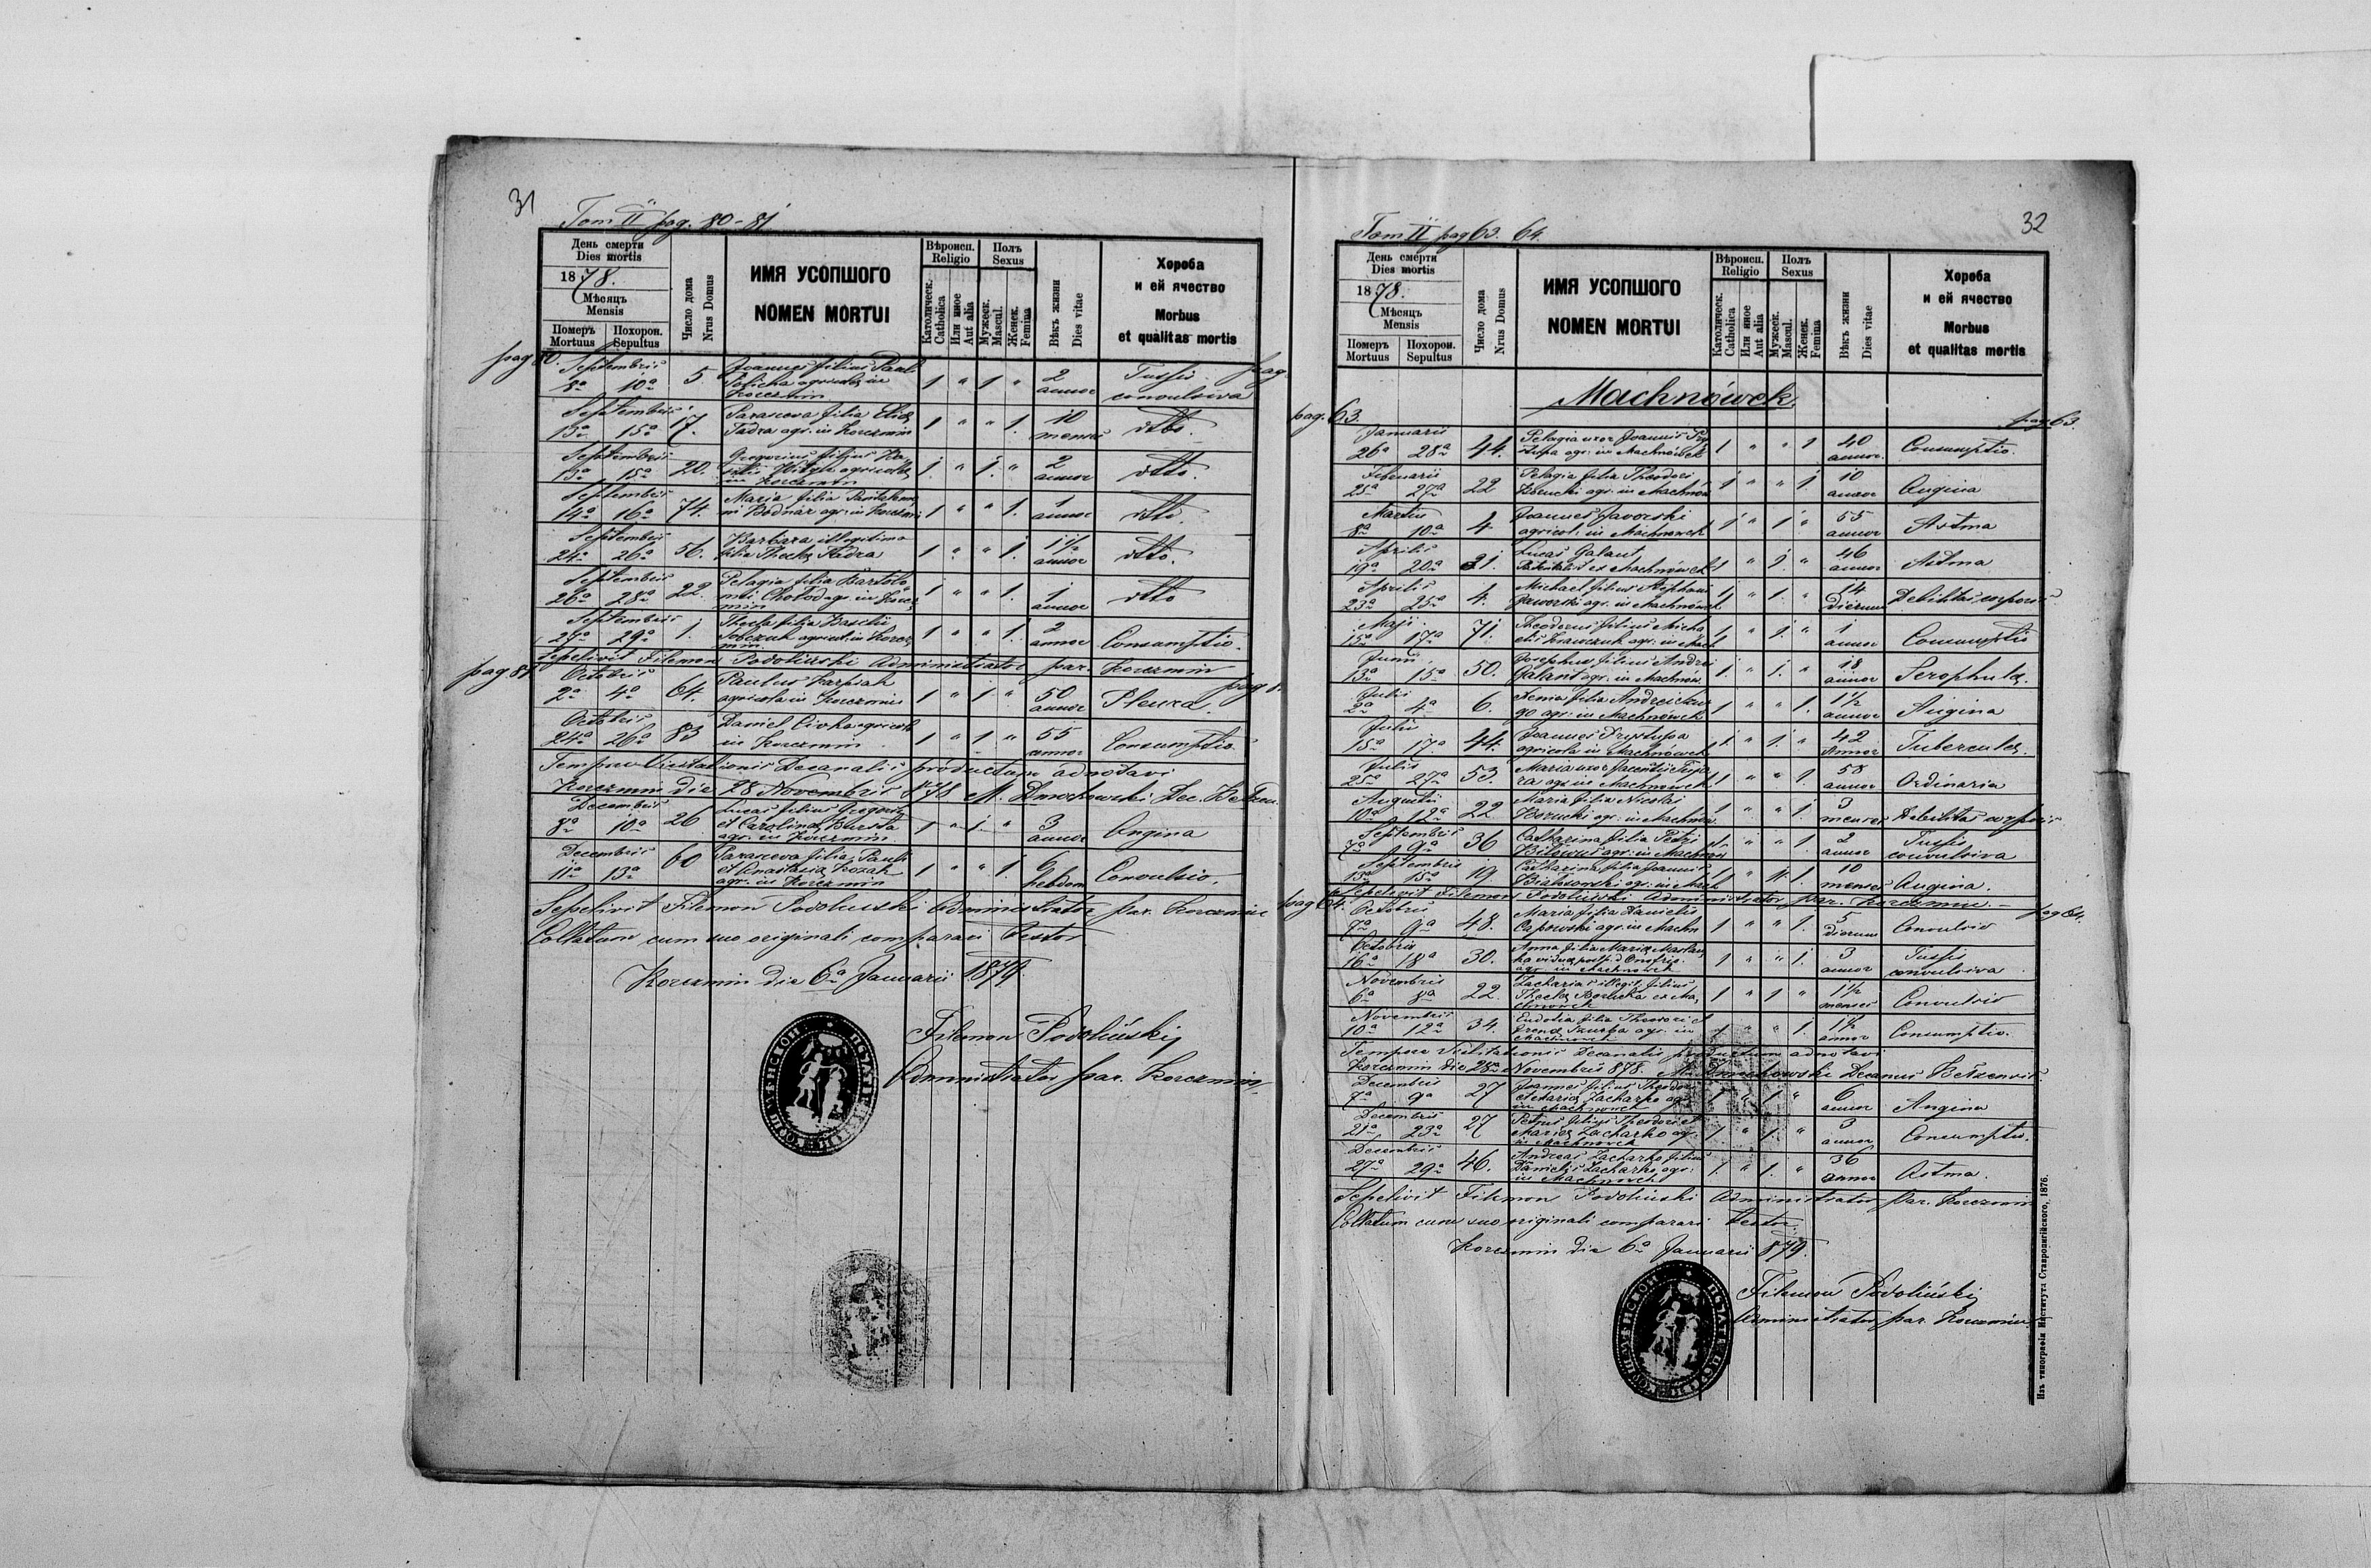 31
Tom II pag. 80-81
День смерти
Dies mortis
1878.
Мѣсяць
Mensis
Померъ Mortuus
Похорон. Sepultus
Число дома
Nrus Domus
ИМЯ УСОПШОГО
NOMEN MORTUI
Вѣроисп.
Religio
Католическ.
Catholica
Или иное
Aut alia
Полъ
Sexus
Мужеск.
Mascul.
Женск.
Femina
Вѣкъ жизни
Dies vitae
Хороба
и ей ячество
Morbus
et qualitas mortis
pag 80.
Septembris
8a 10a 5 Joannes filius Pauli
agricola in
Korczmin
1 " 1 " 2 annor Tussis convulsiva
Septembris
13a 15a 17. Parasceva filia Eliae
Fadra agr. in Korczmin 1 " " 1. 10 menses dtto.
Septembris
13a 15a 20. Gregorius filius
agricola
in Korczmin 1. " 1. " 2 annor dtto.
Septembris
14a 16a 74. Maria filia Pantaleimo
ni Bodnar agr. in Korczmin 1 " " 1. 1 annor dtto.
Septembris
24a 26a 56. Barbara illegitima
filia Theclae Fadra 1 " " 1. 1½ annor dtto.
Septembris
26a 28a 22. Pelagia filia Bartolo
mei Cholod agr. in Korcz
min 1 " " 1. 1 annor dtto
Septembris
27a 29a 1. Thecla filia Basilii
Sobczuk agricol. in Korcz
min. 1 " " 1. 2 annor Consumptio.
Sepelivit Filemon Podoliński Administrator par. Korczmin
pag 81
Octobris
2a 4a 64. Paulus Karpiak
agricola in Korczmin 1 " 1 " 50 annor Pleura.
Octobris
24a 26a 83 Daniel Civka agricola
in Korczmin 1 " 1 " 55 annor Consumptio
Tempore Visitationis Decanalis productum adnotavi
Korczmin die 28 Novembris 878 M. Dmochowski Dec.
Decembris
8a 10a 26 Lucas filius Gregorii
et Carolinae Bursta
agr. in Korczmin 1 " 1. " 3 annor Angina
Decembris
11a 13a 60 Parasceva filia Pauli
et Anastasiae Kozak
agr. in Korczmin 1 " " 1. 6 hebdom Convulsio.
Sepelivit Filemon Podoliński Administrator par. Korczmin
Collatum cum suo originali comparari testor
Korczmin die 6a Januarii 1879.
Filemon Podoliński
Administrator par. Korczmin
32
Tom II pag 63. 64.
День смерти
Dies mortis
1878.
Мѣсяць
Mensis
Померъ Mortuus
Похорон. Sepultus
Число дома
Nrus Domus
ИМЯ УСОПШОГО
NOMEN MORTUI
Вѣроисп.
Religio
Католическ.
Catholica
Или иное
Aut alia
Полъ
Sexus
Мужеск.
Mascul.
Женск.
Femina
Вѣкъ жизни
Dies vitae
Хороба
и ей ячество
Morbus
et qualitas mortis
Machnówek.
pag. 63.
pag 63.
Januarii
26a 28a 44. Pelagia uxor Joannis Pry
stupa agr. in Machnówek 1 " " 1 40 annor. Consumptio.
Februarii
25a 27a 22 Pelagia filia Theodori
agr. in Machnów 1 " " 1. 10 annor Angina
Martii
8a 10a 4 Joannes Javorski
agricol. in Machnówek 1 " 1 " 55 annor Astma
Aprilis
19a 20a 31. Lucas Galant
ex Machnówek 1 " 1. " 46 annor Astma
Aprilis
23a 25a 4. Michael filius Stephani
Jaworski agr. in Machnówek 1 " 1. " 14 dierum Debilitas corporis
Maji
15a 17a 71. Theodorus filius Micha
elis Krawczuk agr. in Mach 1. " 1. " 1 annor Consumptio
Junii
13a 15a 50. Josephus filius Andrei
Galant agr. in Machnów. 1. " 1. " 18 annor Scrophulae.
Julii
2a 4a 6. Xenia filia Andrei
agr. in Machnówek 1 " " 1. 1½ annor Angina
Julii
15a 17a 44. Joannes Prystupa
agricola in Machnówek 1. " 1. " 42 annor Tuberculae.
Julii
25a 27a 53. Maria uxor
agr. in Machnówek 1 " " 1. 58 annor Ordinaria
Augusti
10a 12a 22 Maria filia Nicolai
agr. in Machnów 1 " " 1. 3 menses Debilitas corporis
Septembris
7a 9a 36 Catharina filia Petri
agr. in Machnów 1 " " 1 2 annor Tussis convulsiva
Septembris
13a 15a 19 Catharina filia Joannis
agr. in Mach 1 " " 1. 10 menses Angina.
Sepelivit Filemon Podoliński Administrator par. Korczmin.
pag 64.
pag 64.
Octobris
7a 9a 48. Maria filia Danielis
agr. in Machn 1 " " 1. 5 dierum Convulsio
Octobris
16a 18a 30. Anna filia Mariae
vidua post + Onofrio
agr. in Machnówek 1 " " 1. 3 annor Tussis convulsiva
Novembris
6a 8a 22. Zacharias illegit. filius
Theclae ex Ma
chnówek 1 " 1 " 1½ menses Convulsio
Novembris
10a 12a 34. Eudotia filia Theodori et
Irenae agr. in
Machnówek 1 " " 1. 1½ annor Consumptio.
Tempore Visitationis Decanalis productum adnotavi
Korczmin die 28a Novembris 878. M. Dmochowski Decanus
Decembris
7a 9a 27 Joannes filius Theodori
et Mariae Zacharko agr.
in Machnówek 1 " 1 " 6 annor Angina
Decembris
21a 23a 27 Petrus filius Theodori et
Mariae Zacharko agr.
in Machnówek 1 " 1. " 3 annor Consumptio.
Decembris
27a 29a 46. Andreas Zacharko filius
Danielis Zacharko agr.
in Machnówek 1. " 1. " 36 annor Astma.
Sepelivit Filemon Podoliński Administrator par. Korczmin
Collatum cum suo originali comparari testor.
Korczmin die 6a Januarii 879.
Filemon Podoliński
Administrator par. Korczmin
Изъ типографіи Института Ставропигійского, 1876.